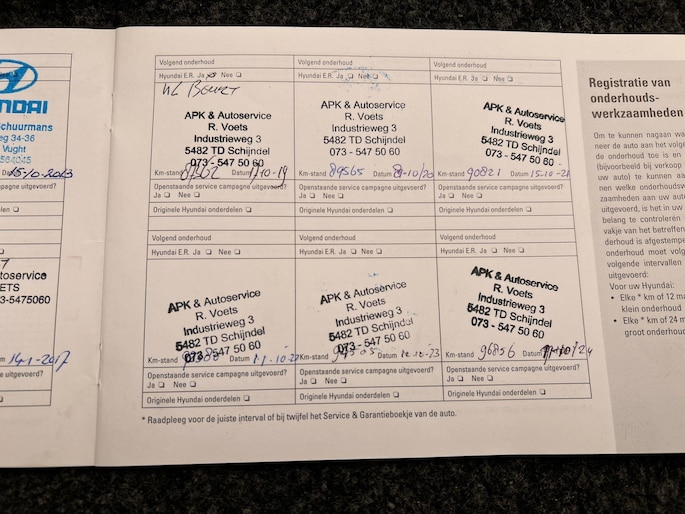 HYUNDAI
Schuurmans
eg 34-36
Vught
564045
15-10-2013
Nee
campagne uitgevoerd?
onderdelen
toservice
VOETS
3-5475060
-2017
agne uitgevoerd?
elen
Volgend onderhoud
Hyundai E.R. Ja Nee
APK & Autoservice
R. Voets
Industrieweg 3
5482 TD Schijndel
073 - 547 50 60
Km-stand Datum -10-19
Openstaande service campagne uitgevoerd?
Ja Nee
Originele Hyundai onderdelen
Volgend onderhoud
Hyundai E.R. Ja Nee
APK & Autoservice
R. Voets
Industrieweg 3
5482 TD Schijndel
073 - 547 50 60
Km-stand 89565 Datum -10/20
Openstaande service campagne uitgevoerd?
Ja Nee
Originele Hyundai onderdelen
Volgend onderhoud
Hyundai E.R. Ja Nee
APK & Autoservice
R. Voets
Industrieweg 3
5482 TD Schijndel
073 - 547 50 60
Km-stand 90821 Datum 15-10-21
Openstaande service campagne uitgevoerd?
Ja Nee
Originele Hyundai onderdelen
Volgend onderhoud
Hyundai E.R. Ja Nee
APK & Autoservice
R. Voets
Industrieweg 3
5482 TD Schijndel
073 - 547 50 60
Km-stand Datum 11-10-22
Openstaande service campagne uitgevoerd?
Ja Nee
Originele Hyundai onderdelen
Volgend onderhoud
Hyundai E.R. Ja Nee
APK & Autoservice
R. Voets
Industrieweg 3
5482 TD Schijndel
073 - 547 50 60
Km-stand Datum -23
Openstaande service campagne uitgevoerd?
Ja Nee
Originele Hyundai onderdelen
Volgend onderhoud
Hyundai E.R. Ja Nee
APK & Autoservice
R. Voets
Industrieweg 3
5482 TD Schijndel
073 - 547 50 60
Km-stand 96856 Datum /24
Openstaande service campagne uitgevoerd?
Ja Nee
Originele Hyundai onderdelen
* Raadpleeg voor de juiste interval of bij twijfel het Service & Garantieboekje van de auto.
Registratie van
onderhouds-
werkzaamheden
Om te kunnen nagaan wa
neer de auto aan het volge
de onderhoud toe is en
(bijvoorbeeld bij verkoop
uw auto) te kunnen aa
nen welke onderhoudsw
zaamheden aan uw auto
uitgevoerd, is het in uw
belang te controleren
vakje van het betreffen
derhoud is afgestempe
onderhoud moet volge
volgende intervallen
uitgevoerd:
Voor uw Hyundai:
• Elke * km of 12 ma
klein onderhoud
• Elke * km of 24 m
groot onderhoud